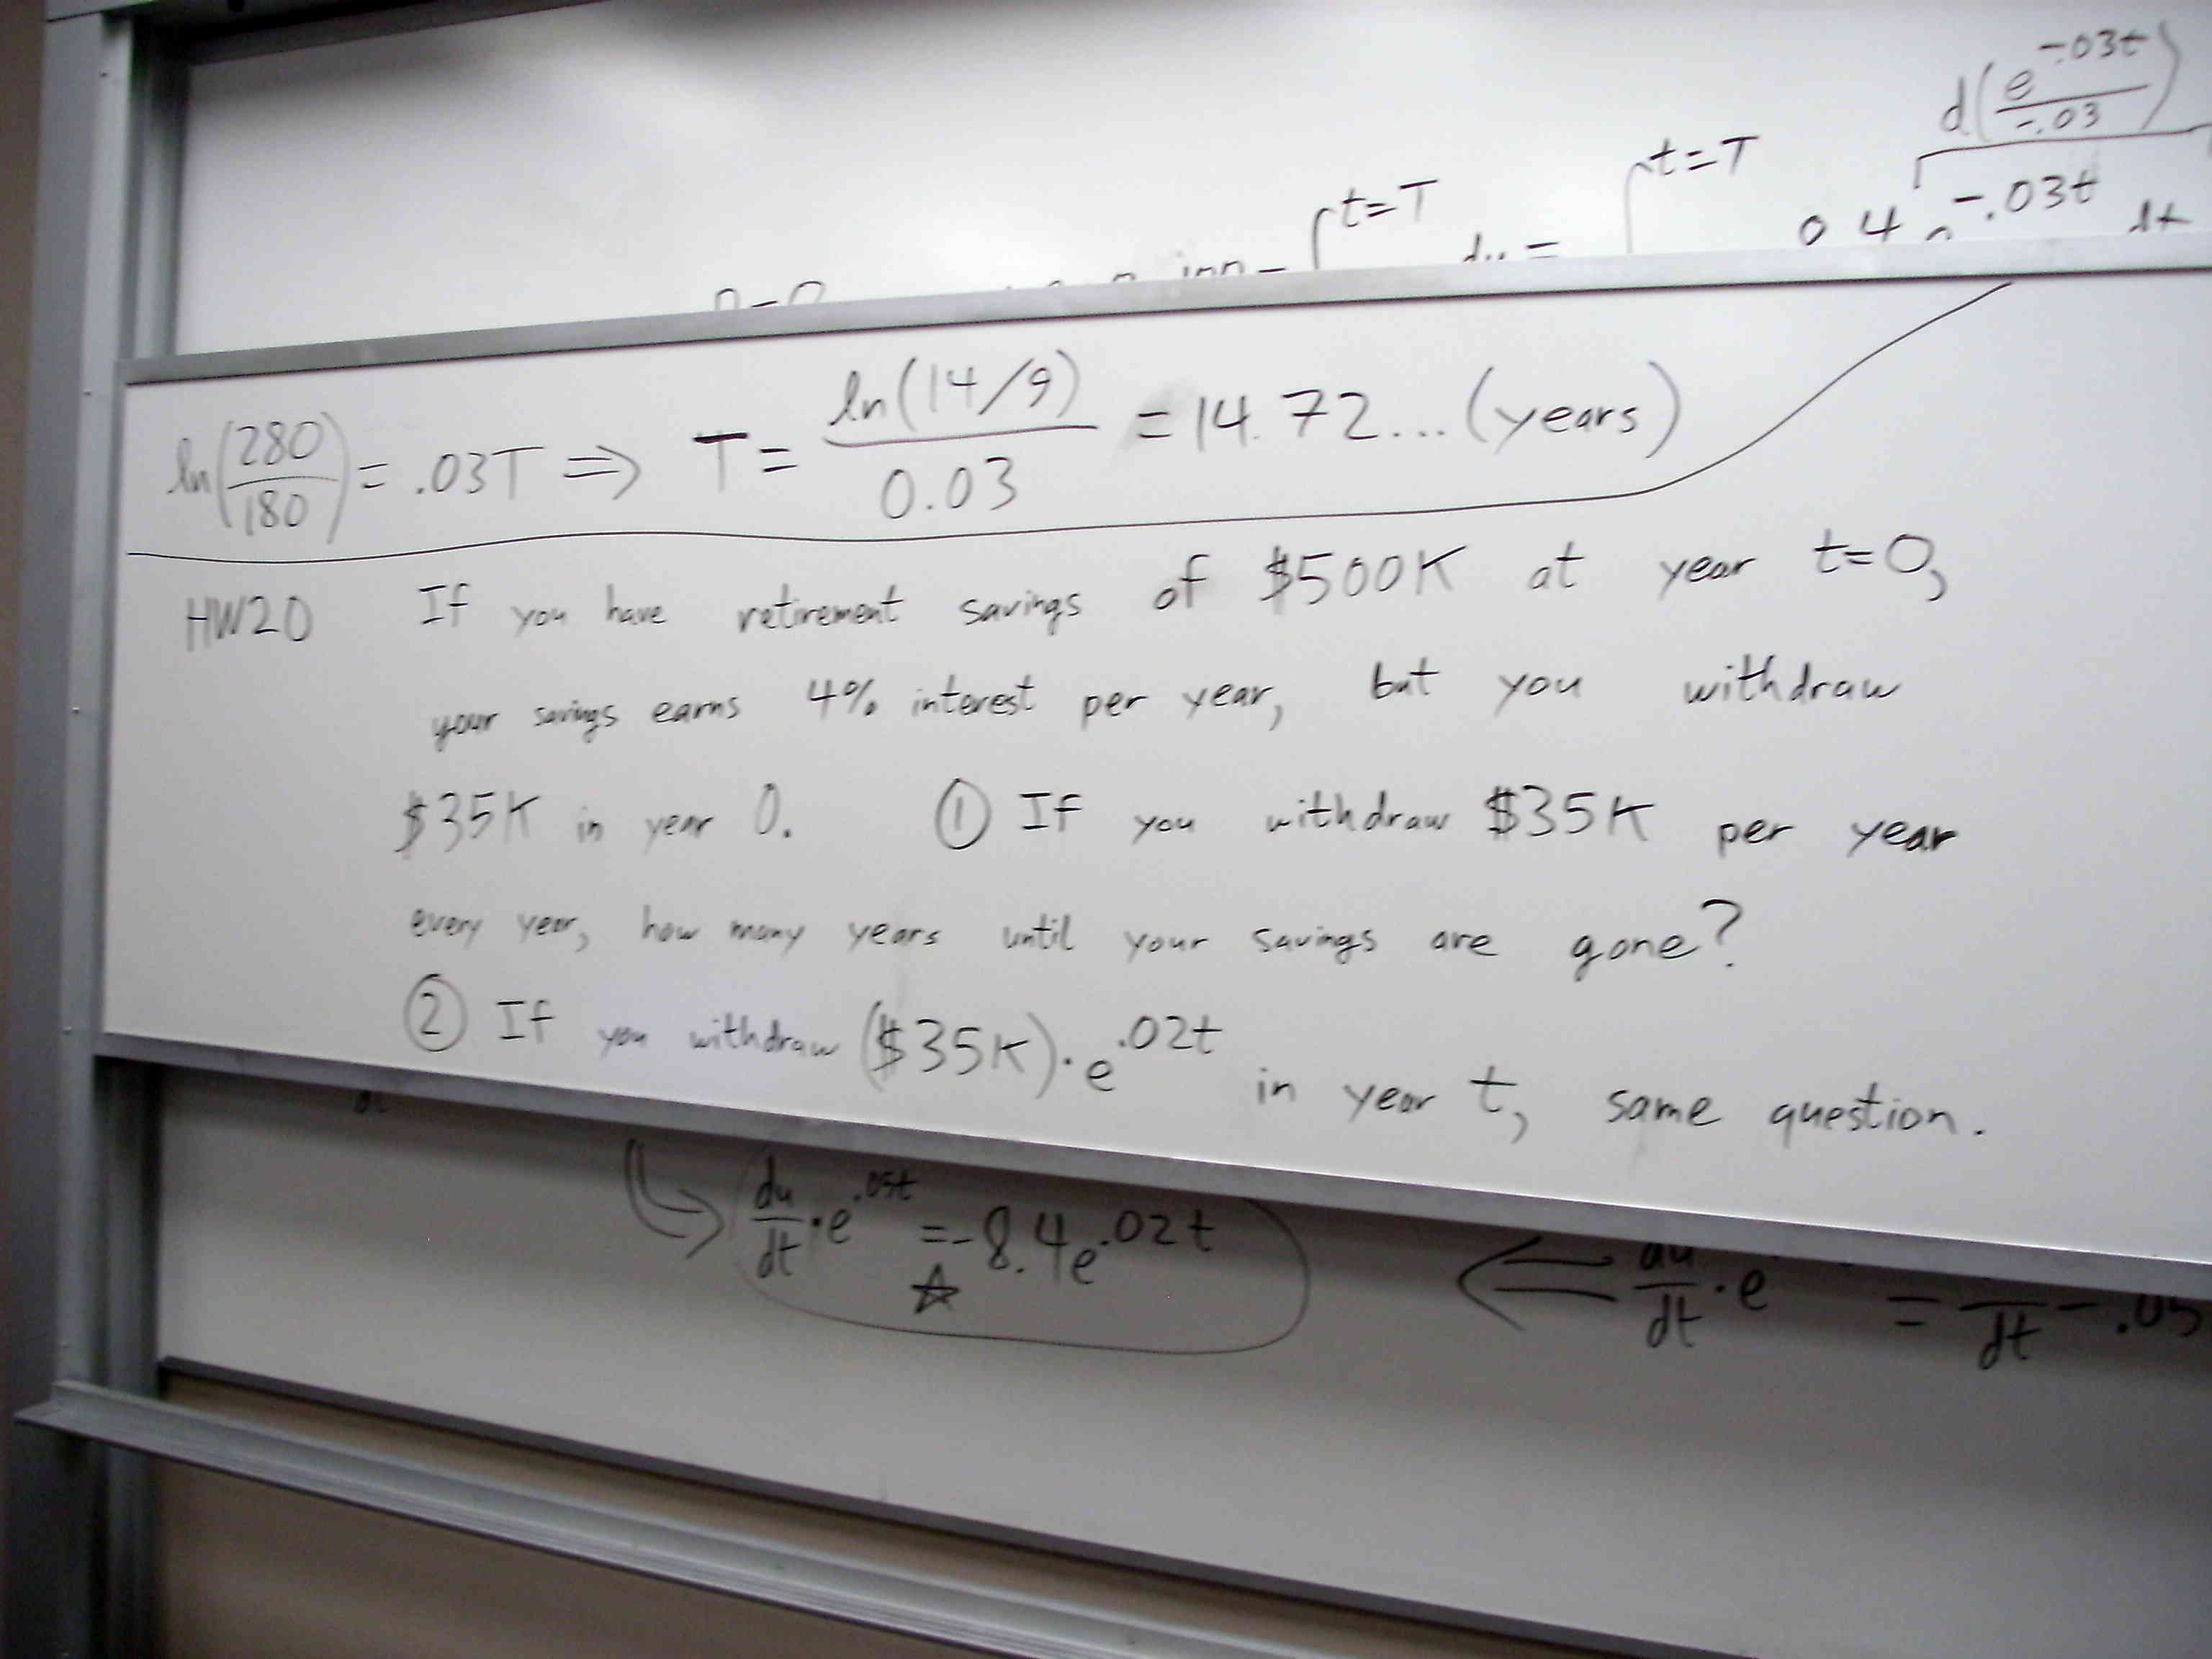 d(e^{-.03t}/-.03)
∫^{t=T} du = ∫^{t=T} -.03t dt
ln(280/180) = .03T ⇒ T = ln(14/9)/0.03 = 14.72... (years)
HW20 If you have retirement savings of $500K at year t=0,
your savings earns 4% interest per year, but you withdraw
$35K in year 0. ① If you withdraw $35K per year
every year, how many years until your savings are gone?
② If you withdraw ($35K)·e^{.02t} in year t, same question.
du/dt · e^{.05t} = -8.4e^{.02t}
☆
⇐ du/dt · e = /dt - .05